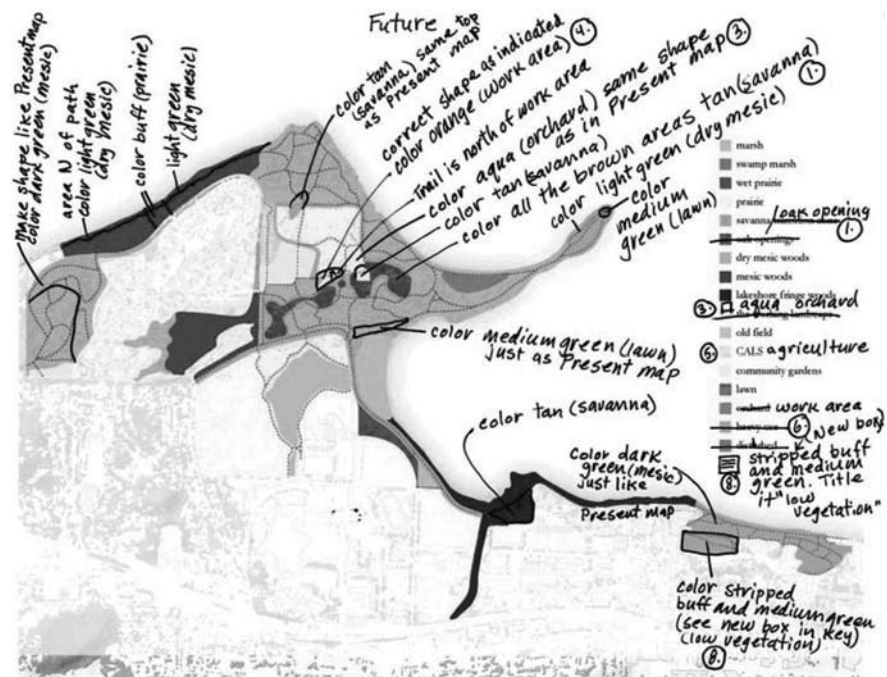 Future
make shape like Present map
color dark green (mesic)
area N of path
color light green
(dry mesic)
color buff (prairie)
light green
(dry mesic)
color tan
(savanna) same top
as Present map
4.
correct shape as indicated
color orange (work area)
Trail is north of work area
color aqua (orchard) same shape
as in Present map
3.
color tan (savanna)
color all the brown areas tan (savanna)
1.
color light green (dry mesic)
color
medium
green (lawn)
marsh
swamp marsh
wet prairie
prairie
savanna
oak opening
1.
oak openings
dry mesic woods
mesic woods
lakeshore fringe woods
3. aqua orchard
old field
5. CALS agriculture
community gardens
lawn
orchard work area
heavy use
6. (New box)
disturbed
8. stripped buff
and medium
green. Title
it "low
vegetation"
color medium green (lawn)
just as Present map
color tan (savanna)
Color dark
green (mesic)
just like
Present map
color stripped
buff and medium green
(see new box in key)
(low vegetation)
8.